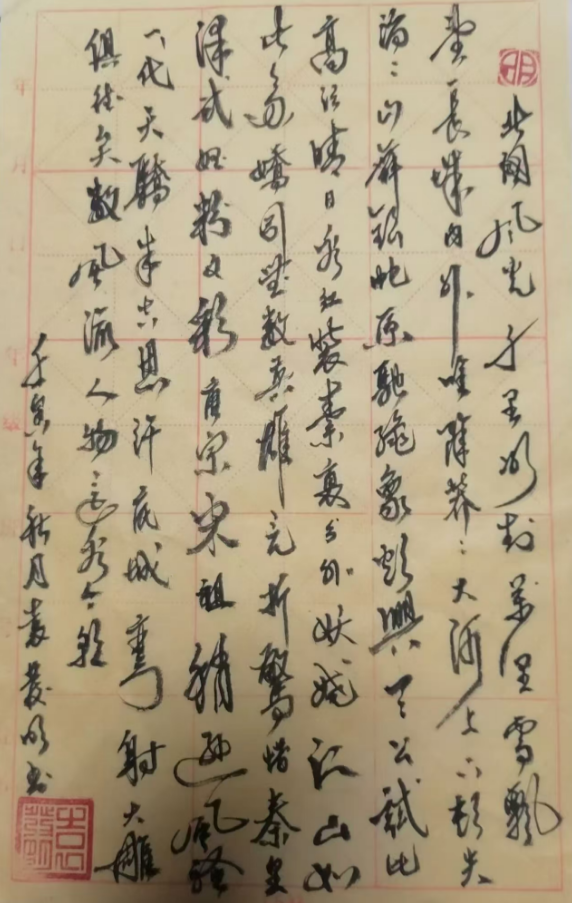 明
北国风光千里冰封万里雪飘
望长城内外唯馀莽〻大河上下顿失
滔〻山舞银蛇原驰蜡象欲與天公試比
高须晴日看红装素裹分外妖娆江山如
此多嬌引无数英雄竞折腰惜秦皇
漢武略输文彩唐宗宋祖稍遜风骚
一代天驕成吉思汗只识弯弓射大雕
俱往矣数風流人物还看今朝
年秋月發明书